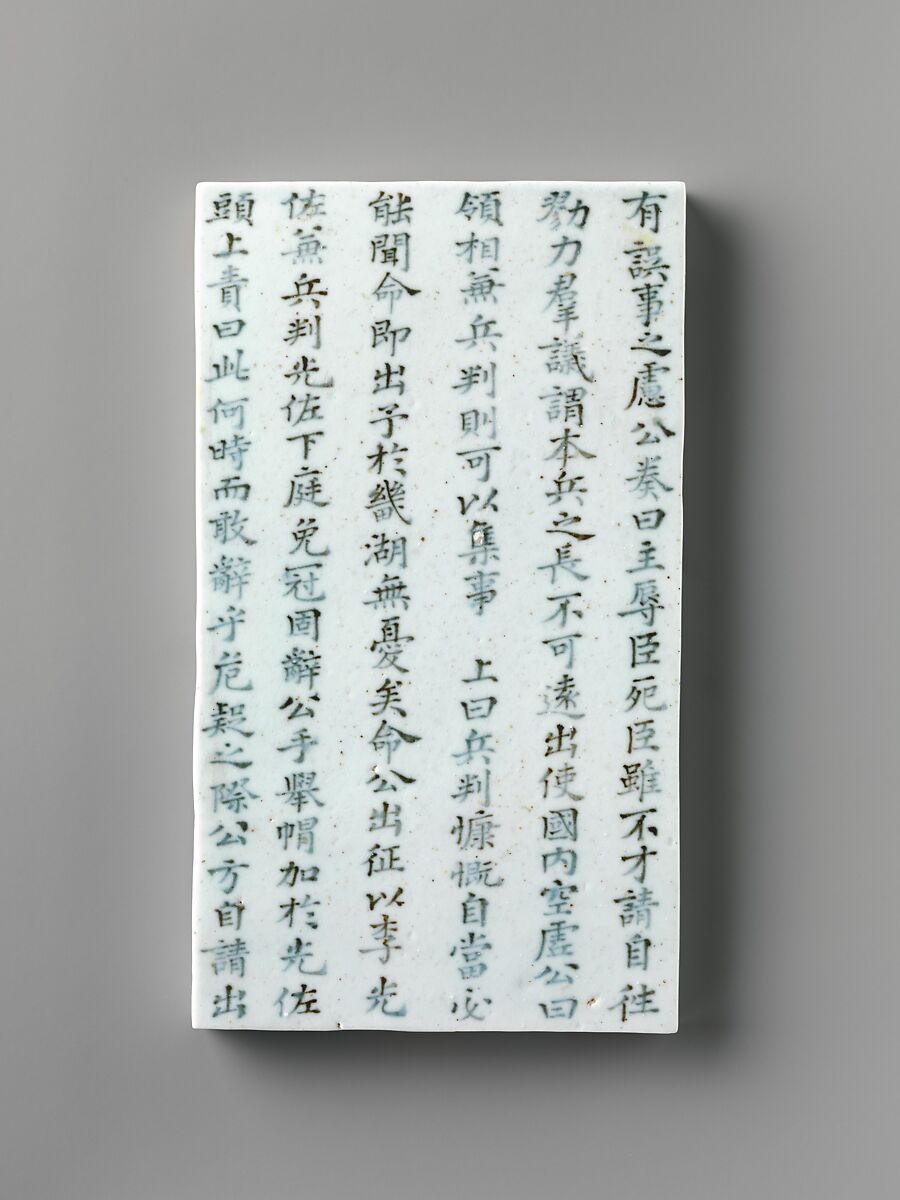 有誤事之慮公奏曰主辱臣死臣雖不才請自徃
勠力羣議謂本兵之長不可遠出使國內空虛公曰
領相兼兵判則可以集事　上曰兵判慷慨自當必
能聞命即出予於畿湖無憂矣命公出征以李光
佐兼兵判光佐下庭免冠固辭公手舉帽加於光佐
頭上責曰此何時而敢辭乎危疑之際公方自請出